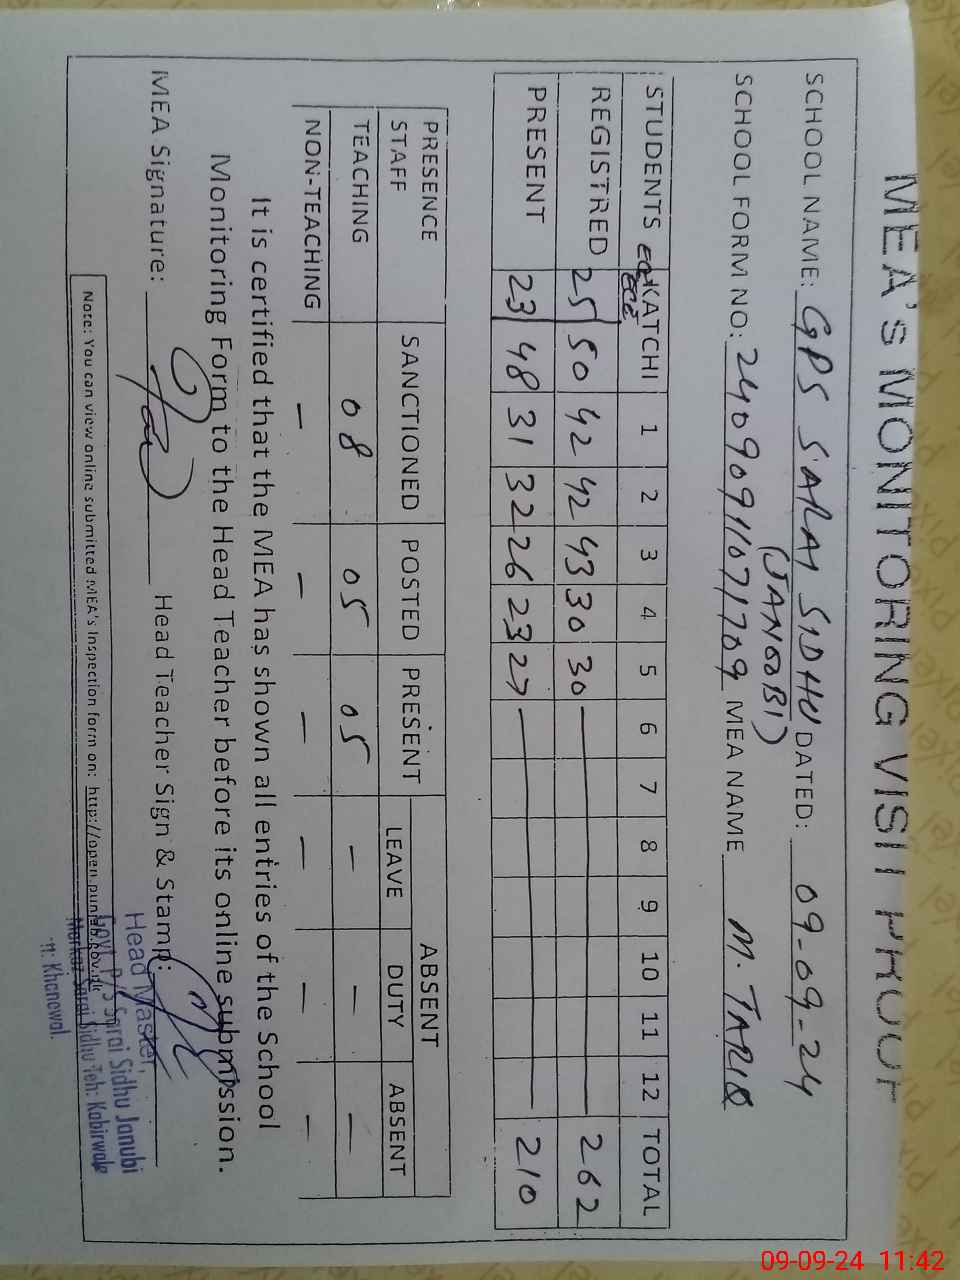 MEA'S MONITORING VISIT PROOF
SCHOOL NAME: GPS SARAI SIDHU DATED: 09-09-24
(JANOOBI)
SCHOOL FORM NO: 24090911071709 MEA NAME M. TARIQ
STUDENTS ECE KATCHI 1 2 3 4 5 6 7 8 9 10 11 12 TOTAL
REGISTRED 25 50 42 42 43 30 30 262
PRESENT 23 48 31 32 26 23 27 210
PRESENCE STAFF SANCTIONED POSTED PRESENT ABSENT
LEAVE DUTY ABSENT
TEACHING 08 05 05 — — —
NON-TEACHING — — — — — —
It is certified that the MEA has shown all entries of the School
Monitoring Form to the Head Teacher before its online submission.
MEA Signature: Head Teacher Sign & Stamp:
Head Master,
Govt. P/S Sarai Sidhu Janubi
Markaz Sarai Sidhu Teh: Kabirwala
tt: Khanewal.
Note: You can view online submitted MEA's Inspection form on: http://open.punjab.gov.pk
09-09-24 11:42